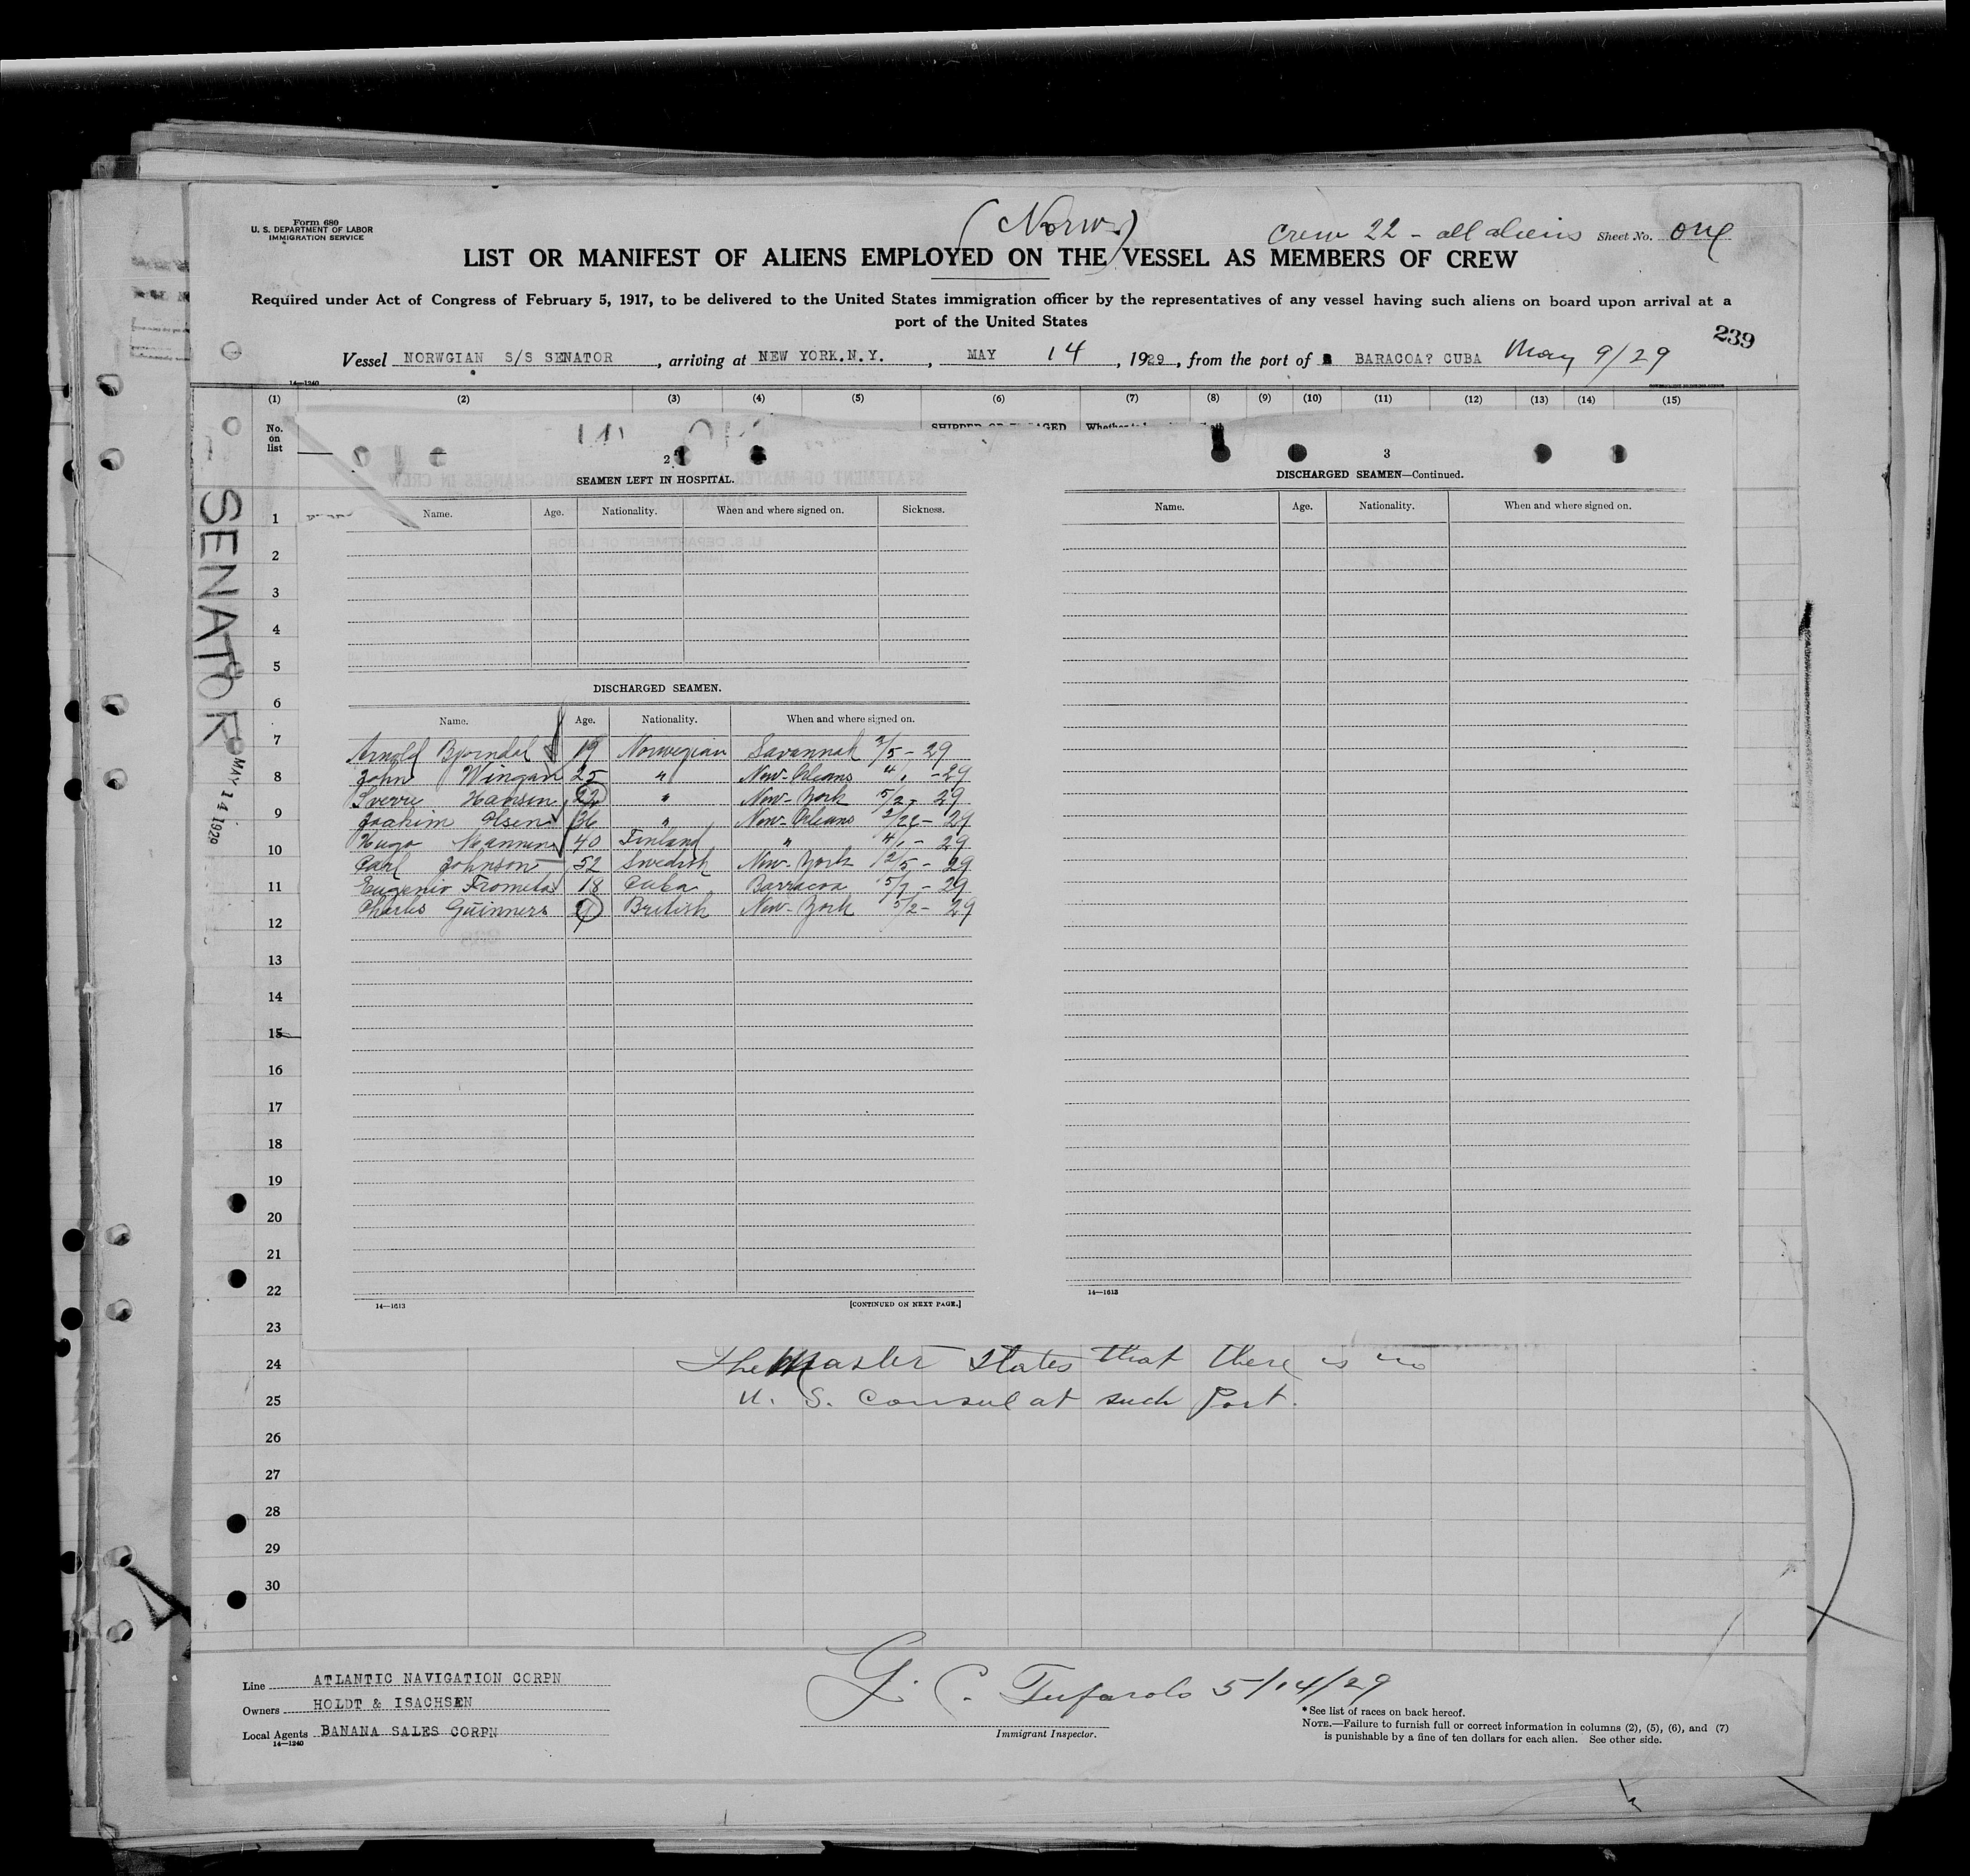 Form 680
U. S. DEPARTMENT OF LABOR
IMMIGRATION SERVICE
(Norw.)
Crew 22 - all aliens Sheet No. one
LIST OR MANIFEST OF ALIENS EMPLOYED ON THE VESSEL AS MEMBERS OF CREW
Required under Act of Congress of February 5, 1917, to be delivered to the United States immigration officer by the representatives of any vessel having such aliens on board upon arrival at a
port of the United States
239
Vessel NORWGIAN S/S SENATOR, arriving at NEW YORK.N.Y., MAY 14, 1929, from the port of BARACOA? CUBA May 9/29
14—1240
(1) (2) (3) (4) (5) (6) (7) (8) (9) (10) (11) (12) (13) (14) (15)
No.
on
list
SENATOR
MAY 14 1929
2
SEAMEN LEFT IN HOSPITAL.
Name. Age. Nationality. When and where signed on. Sickness.
DISCHARGED SEAMEN.
Name. Age. Nationality. When and where signed on.
Arnold Bjorndal 19 Norwegian Savannah 3/5 - 29
John Wingan 25 " New-Orleans 4/1 - 29
Sverre Hansen 22 " New-York 5/2 - 29
Joakim Olsen 36 " New-Orleans 2/22 - 29
Hugo Mannine 40 Finland " 4/1 - 29
Carl Johnson 52 Swedish New-York 12/5 - 29
Eugenio Frometa 18 Cuba Barracoa 5/7 - 29
Charles Guinners British New-York 5/2 - 29
14—1613 [CONTINUED ON NEXT PAGE.]
3
DISCHARGED SEAMEN—Continued.
Name. Age. Nationality. When and where signed on.
14—1613
1
2
3
4
5
6
7
8
9
10
11
12
13
14
15
16
17
18
19
20
21
22
23
24
25
26
27
28
29
30
The Master states that there is no
U. S. Consul at such Port.
Line ATLANTIC NAVIGATION CORPN
Owners HOLDT & ISACHSEN
Local Agents BANANA SALES CORPN
14—1240
G. C. Tufarolo 5/14/29
Immigrant Inspector.
*See list of races on back hereof.
NOTE.—Failure to furnish full or correct information in columns (2), (5), (6), and (7)
is punishable by a fine of ten dollars for each alien. See other side.